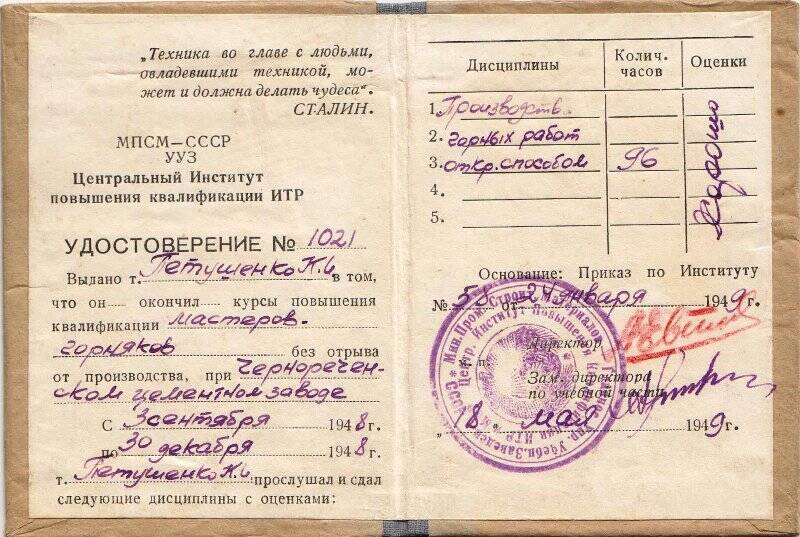 „Техника во главе с людьми,
овладевшими техникой, мо-
жет и должна делать чудеса".
СТАЛИН.
МПСМ—СССР
УУЗ
Центральный Институт
повышения квалификации ИТР
УДОСТОВЕРЕНИЕ № 1021
Выдано т. Петушенко Н.И. в том,
что он окончил курсы повышения
квалификации мастеров-
горняков без отрыва
от производства, при Черноречен-
ском цементном заводе
С 3 сентября 1948 г.
по 30 декабря 1948 г.
т. Петушенко Н.И. прослушал и сдал
следующие дисциплины с оценками:
Дисциплины Колич. часов Оценки
1. Производств.
2. горных работ
3. откр. способом 96 Хорошо
4.
5.
Основание: Приказ по Институту
№ от 24 января 1949 г.
Директор
Зам. директора
по учебной части
18 мая 1949 г.